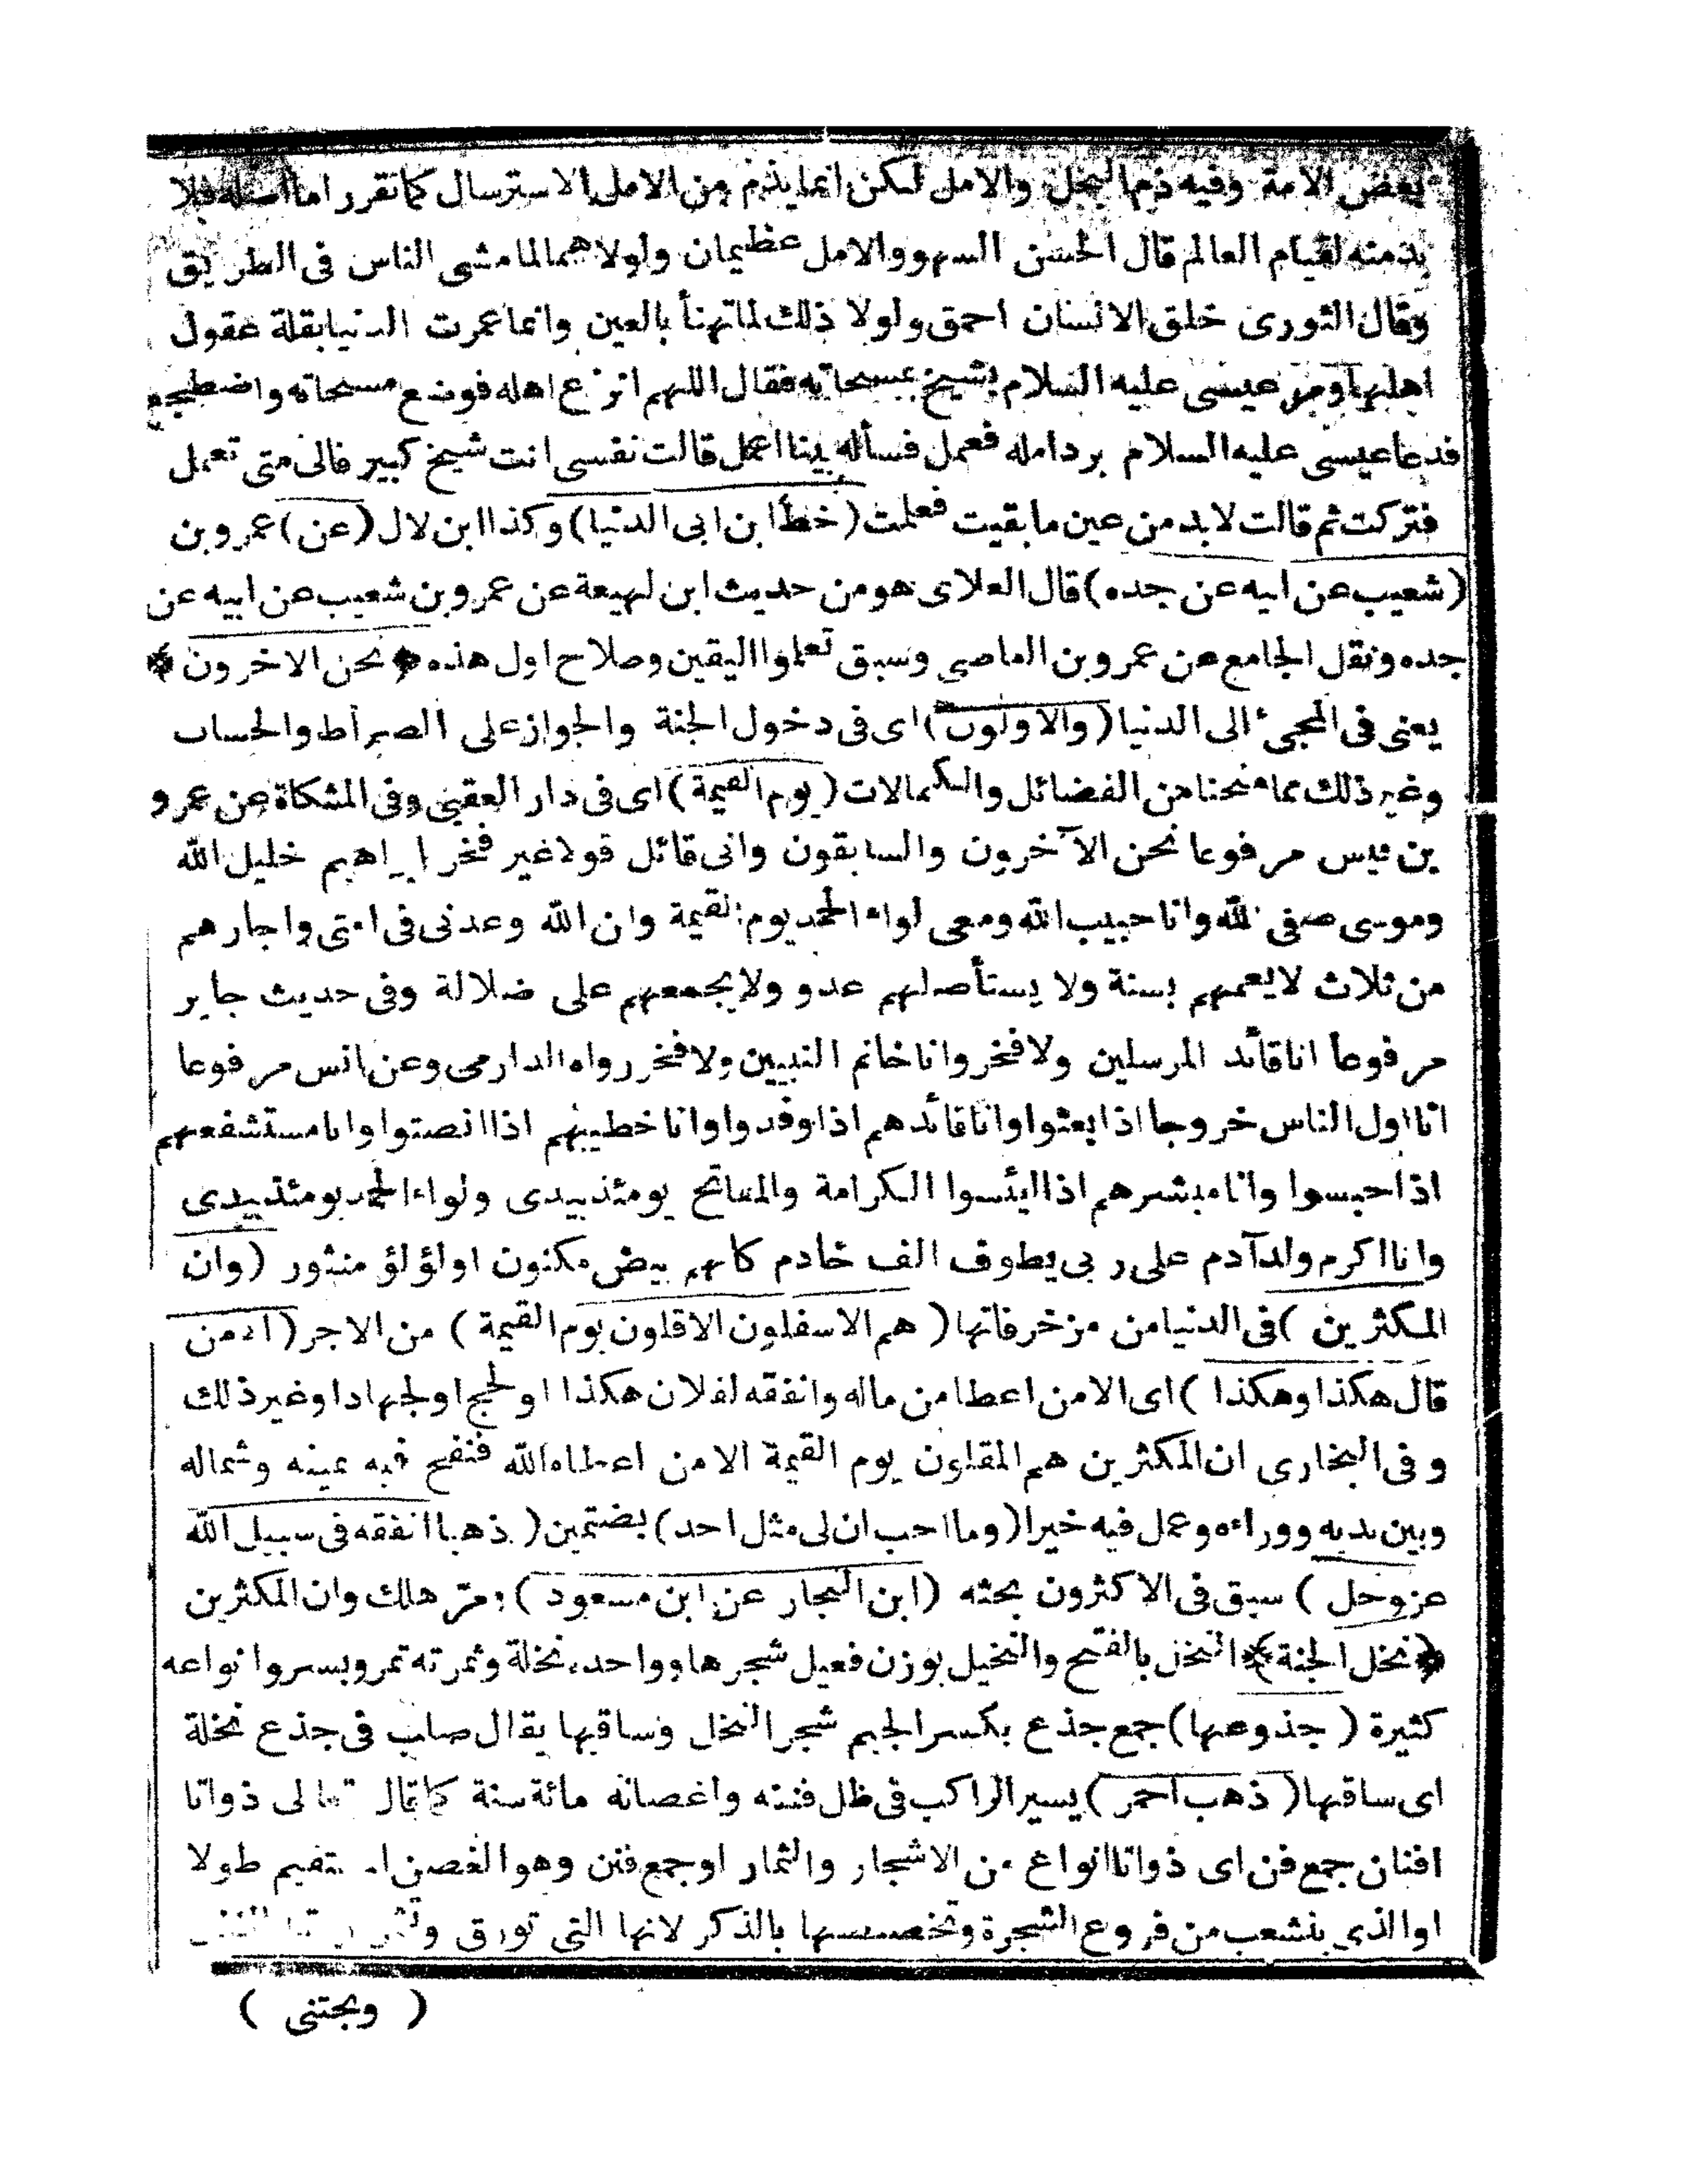 بعض الامة وفيه ذم البخل والامل لكن انما يذم من الامل الاسترسال كما تقرر اما اصله فلا
بد منه لقيام العالم قال الحسن السهو والامل عظيمان ولولاهما لما مشى الناس فى الطريق
وقال الثورى خلق الانسان احمق ولولا ذلك لما تهنأ بالعين وانما عمرت الدنيا بقلة عقول
اهلها ومر عيسى عليه السلام بشيخ بمسحاته فقال اللهم انزع امله فوضع مسحاته واضطجع
فدعا عيسى عليه السلام برد امله فعمل فسأله بينا اعمل قالت نفسى انت شيخ كبير فالى متى تعمل
فتركت ثم قالت لا بد من عين ما بقيت فعلمت (خط ابن ابى الدنيا) وكذا ابن لال (عن) عمرو بن
(شعيب عن ابيه عن جده) قال العلاى هو من حديث ابن لهيعة عن عمرو بن شعيب عن ابيه عن
جده ونقل الجامع عن عمرو بن العاصى وسبق تعلموا اليقين وصلاح اول هذه ﴿نحن الاخرون﴾
يعنى فى المجىء الى الدنيا (والاولون) اى فى دخول الجنة والجواز على الصراط والحساب
وغير ذلك مما منحنا من الفضائل والكمالات (يوم القيمة) اى فى دار العقبى وفى المشكاة عن عمرو
بن قيس مرفوعا نحن الآخرون والسابقون وانى قائل قولا غير فخر ابراهيم خليل الله
وموسى صفى الله وانا حبيب الله ومعى لواء الحمد يوم القيمة وان الله وعدنى فى امتى واجارهم
من ثلاث لا يعمهم بسنة ولا يستأصلهم عدو ولا يجمعهم على ضلالة وفى حديث جابر
مرفوعا انا قائد المرسلين ولا فخر وانا خاتم النبيين ولا فخر رواه الدارمى وعن انس مرفوعا
انا اول الناس خروجا اذا بعثوا وانا قائدهم اذا وفدوا وانا خطيبهم اذا انصتوا وانا مستشفعهم
اذا حبسوا وانا مبشرهم اذا ايئسوا الكرامة والمفاتح يومئذ بيدى ولواء الحمد يومئذ بيدى
وانا اكرم ولد آدم على ربى يطوف الف خادم كانهم بيض مكنون اولؤلؤ منثور (وان
المكثرين) فى الدنيا من مزخرفاتها (هم الاسفلون الاقلون يوم القيمة) من الاجر (الا من
قال هكذا وهكذا) اى الا من اعطا من ماله وانفقه لفلان هكذا او لحج او لجهاد او غير ذلك
وفى البخارى ان المكثرين هم المقلون يوم القيمة الا من اعطاه الله فنفح فيه يمينه وشماله
وبين يديه ووراءه وعمل فيه خيرا (وما احب ان لى مثل احد) بضمتين (ذهبا انفقه فى سبيل الله
عز وجل) سبق فى الاكثرون بحثه (ابن النجار عن ابن مسعود) ومر هلك وان المكثرين
﴿نخل الجنة﴾ النخل بالفتح والنخيل بوزن فعيل شجرها وواحده نخلة وثمرته تمر وبسر وانواعه
كثيرة (جذوعها) جمع جذع بكسر الجيم شجر النخل وساقها يقال صلب فى جذع نخلة
اى ساقها (ذهب احمر) يسير الراكب فى ظل فننه واغصانه مائة سنة كما قال تعالى ذواتا
افنان جمع فن اى ذواتا انواع من الاشجار والثمار او جمع فنن وهو الغصن المستقيم طولا
او الذى ينشعب من فروع الشجرة وتخصيصها بالذكر لانها التى تورق
( ويجتنى )